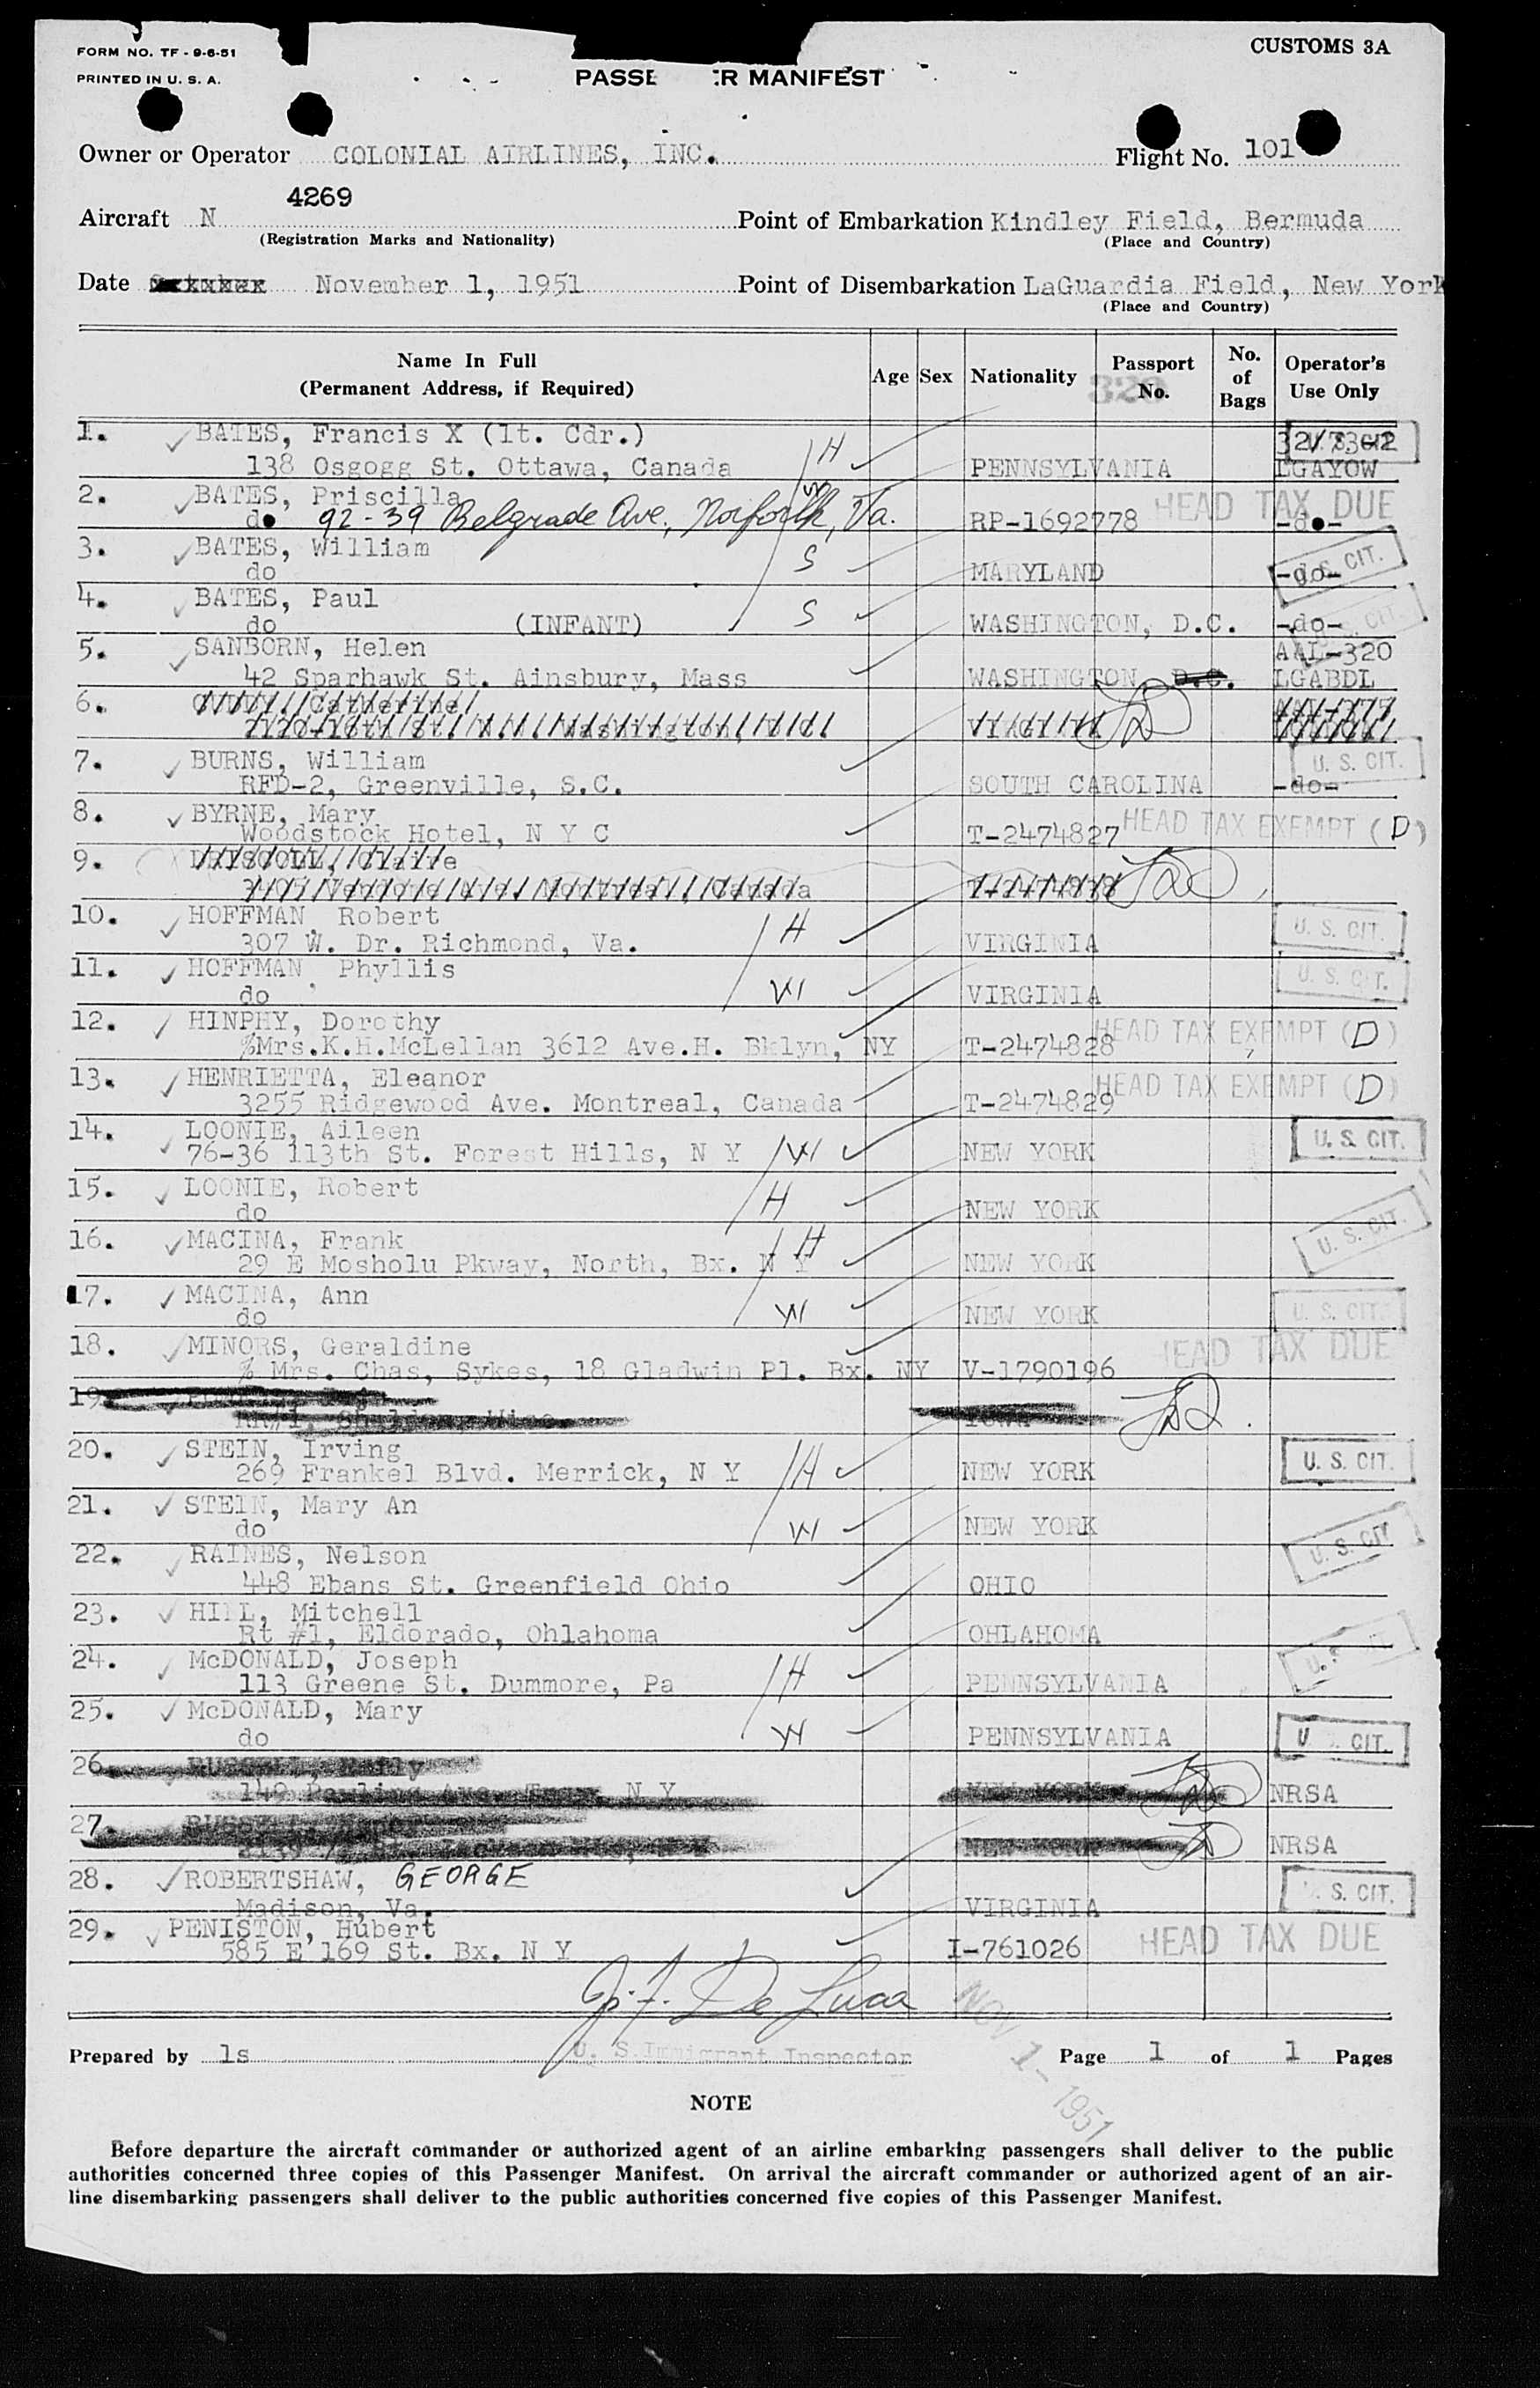 FORM NO. TF - 9-6-51
PRINTED IN U. S. A.
CUSTOMS 3A
PASSE ER MANIFEST
Owner or Operator COLONIAL AIRLINES, INC.
Flight No. 101
4269
Aircraft N
Point of Embarkation Kindley Field, Bermuda
(Registration Marks and Nationality)
(Place and Country)
Date November 1, 1951
Point of Disembarkation LaGuardia Field, New York
(Place and Country)
Name In Full
(Permanent Address, if Required)
Age Sex Nationality
Passport No.
No. of Bags
Operator's Use Only
320
1. BATES, Francis X (lt. Cdr.)
138 Osgogg St. Ottawa, Canada H PENNSYLVANIA LGAYOW
2. BATES, Priscilla W HEAD TAX DUE
do 92-39 Belgrade Ave, Norfolk, Va. RP-1692778 -do-
3. BATES, William S U. S. CIT.
do MARYLAND -do-
4. BATES, Paul S U. S. CIT.
do (INFANT) WASHINGTON, D.C. -do-
5. SANBORN, Helen AAL-320
42 Sparhawk St. Ainsbury, Mass WASHINGTON D.C. LGABDL
6. Catherine
7. BURNS, William U. S. CIT.
RFD-2, Greenville, S.C. SOUTH CAROLINA -do-
8. BYRNE, Mary HEAD TAX EXEMPT (D)
Woodstock Hotel, N Y C T-2474827
9. DRISCOLL, Claire
Montreal, Canada
10. HOFFMAN, Robert H U. S. CIT.
307 W. Dr. Richmond, Va. VIRGINIA
11. HOFFMAN, Phyllis W U. S. CIT.
do VIRGINIA
12. HINPHY, Dorothy HEAD TAX EXEMPT (D)
%Mrs.K.H.McLellan 3612 Ave.H. Bklyn, NY T-2474828
13. HENRIETTA, Eleanor HEAD TAX EXEMPT (D)
3255 Ridgewood Ave. Montreal, Canada T-2474829
14. LOONIE, Aileen U. S. CIT.
76-36 113th St. Forest Hills, N Y W NEW YORK
15. LOONIE, Robert H
do NEW YORK U. S. CIT.
16. MACINA, Frank H
29 E Mosholu Pkway, North, Bx. N Y NEW YORK
17. MACINA, Ann W U. S. CIT.
do NEW YORK
18. MINORS, Geraldine HEAD TAX DUE
% Mrs. Chas, Sykes, 18 Gladwin Pl. Bx. NY V-1790196
19.
20. STEIN, Irving H U. S. CIT.
269 Frankel Blvd. Merrick, N Y NEW YORK
21. STEIN, Mary An W
do NEW YORK U. S. CIT
22. RAINES, Nelson
448 Ebans St. Greenfield Ohio OHIO
23. HILL, Mitchell
Rt #1, Eldorado, Ohlahoma OHLAHOMA
24. McDONALD, Joseph H
113 Greene St. Dummore, Pa PENNSYLVANIA
25. McDONALD, Mary W U CIT.
do PENNSYLVANIA
26.
N Y NRSA
27.
NRSA
28. ROBERTSHAW, GEORGE S. CIT.
Madison, Va. VIRGINIA
29. PENISTON, Hubert HEAD TAX DUE
585 E 169 St. Bx. N Y I-761026
J. F. De Luca
NOV 1 - 1951
Prepared by ls U. S. Immigrant Inspector Page 1 of 1 Pages
NOTE
Before departure the aircraft commander or authorized agent of an airline embarking passengers shall deliver to the public
authorities concerned three copies of this Passenger Manifest. On arrival the aircraft commander or authorized agent of an air-
line disembarking passengers shall deliver to the public authorities concerned five copies of this Passenger Manifest.